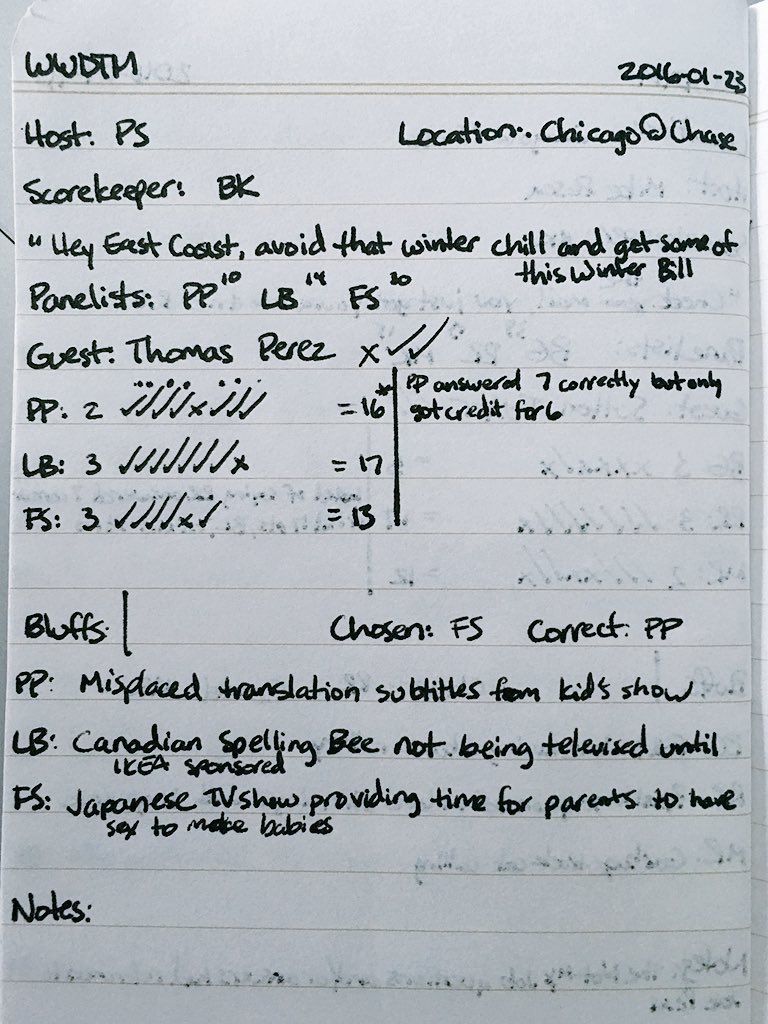 WWDTM 2016-01-23
Host: PS Location: Chicago @ Chase
Scorekeeper: BK
"Hey East Coast, avoid that winter chill and get some of
this Winter Bill
Panelists: PP 10 LB 14 FS 20
Guest: Thomas Perez x✓✓
PP: 2 ✓✓✓✓x✓✓✓ = 16* PP answered 7 correctly but only
got credit for 6
LB: 3 ✓✓✓✓✓✓✓x = 17
FS: 3 ✓✓✓✓x✓ = 13
Bluffs: Chosen: FS Correct: PP
PP: Misplaced translation subtitles from kid's show
LB: Canadian Spelling Bee not being televised until
IKEA sponsored
FS: Japanese TV show providing time for parents to have
sex to make babies
Notes: